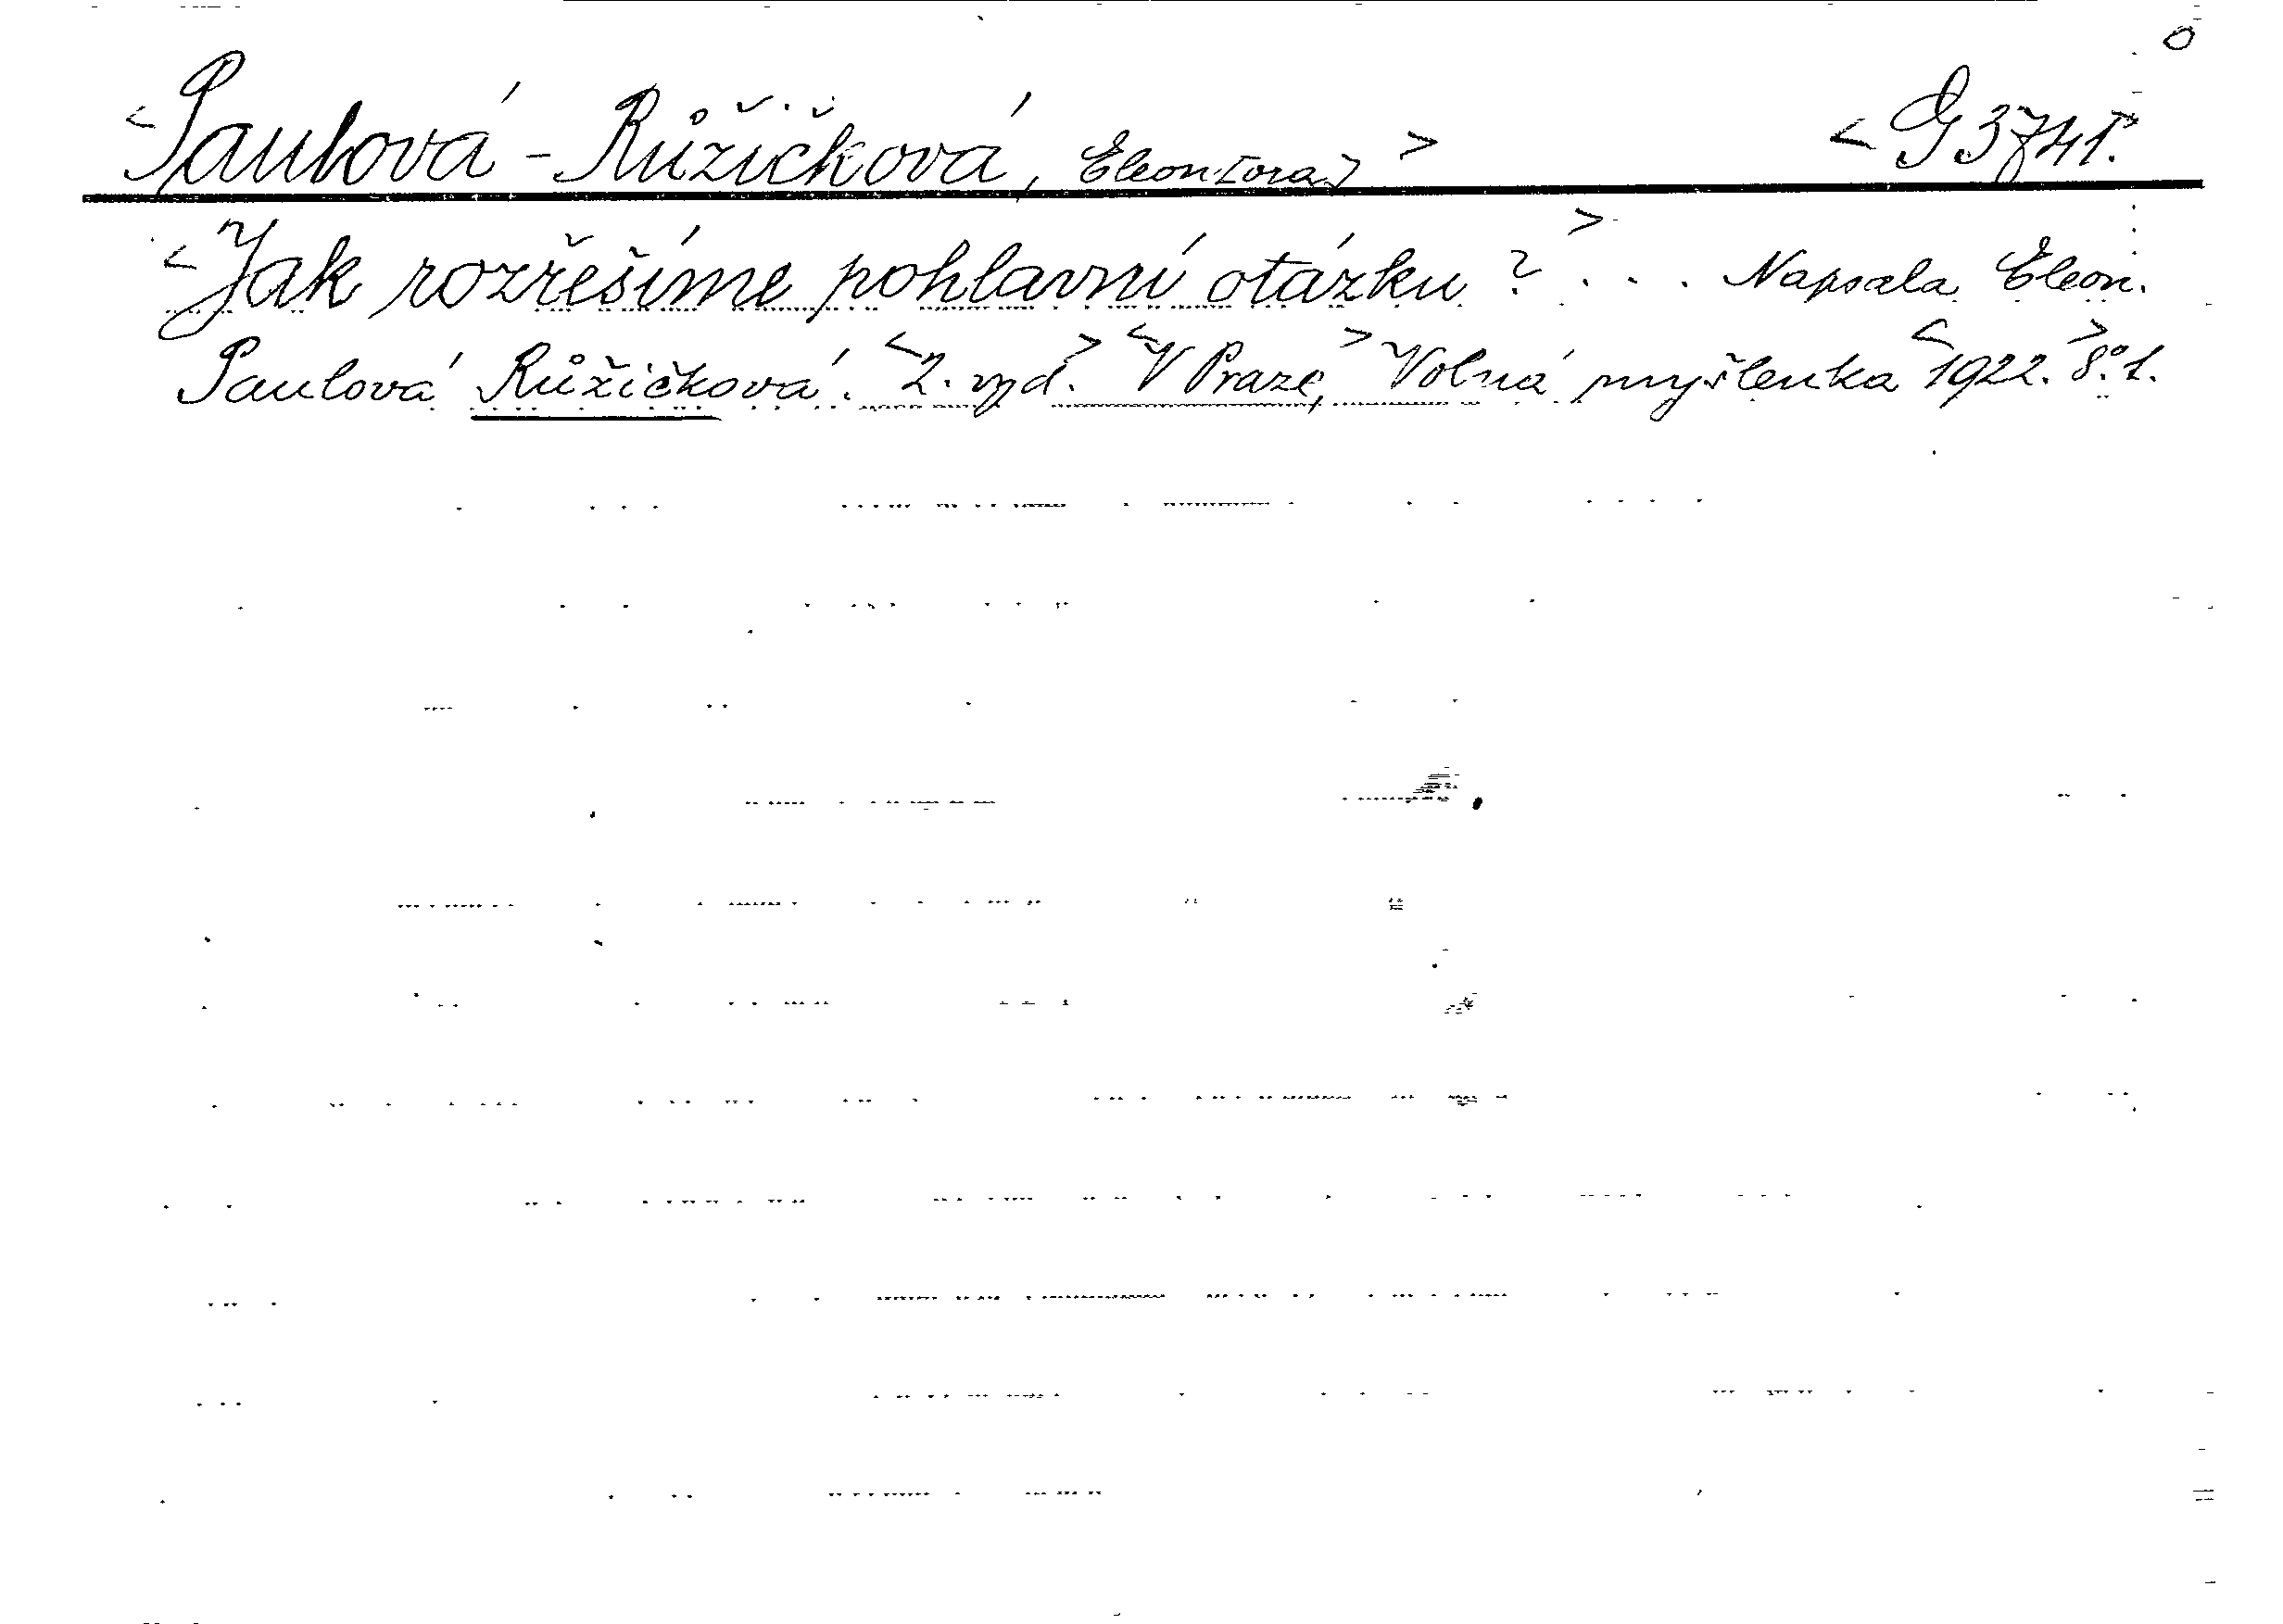 <Paulová-Růžičková, Eleon[ora]> <G 3741.>
<Jak rozřešíme pohlavní otázku?> ... Napsala Eleon.
Paulová Růžičková. <2. vyd.> <V Praze,> Volná myšlenka <1922.> 8.° 1.